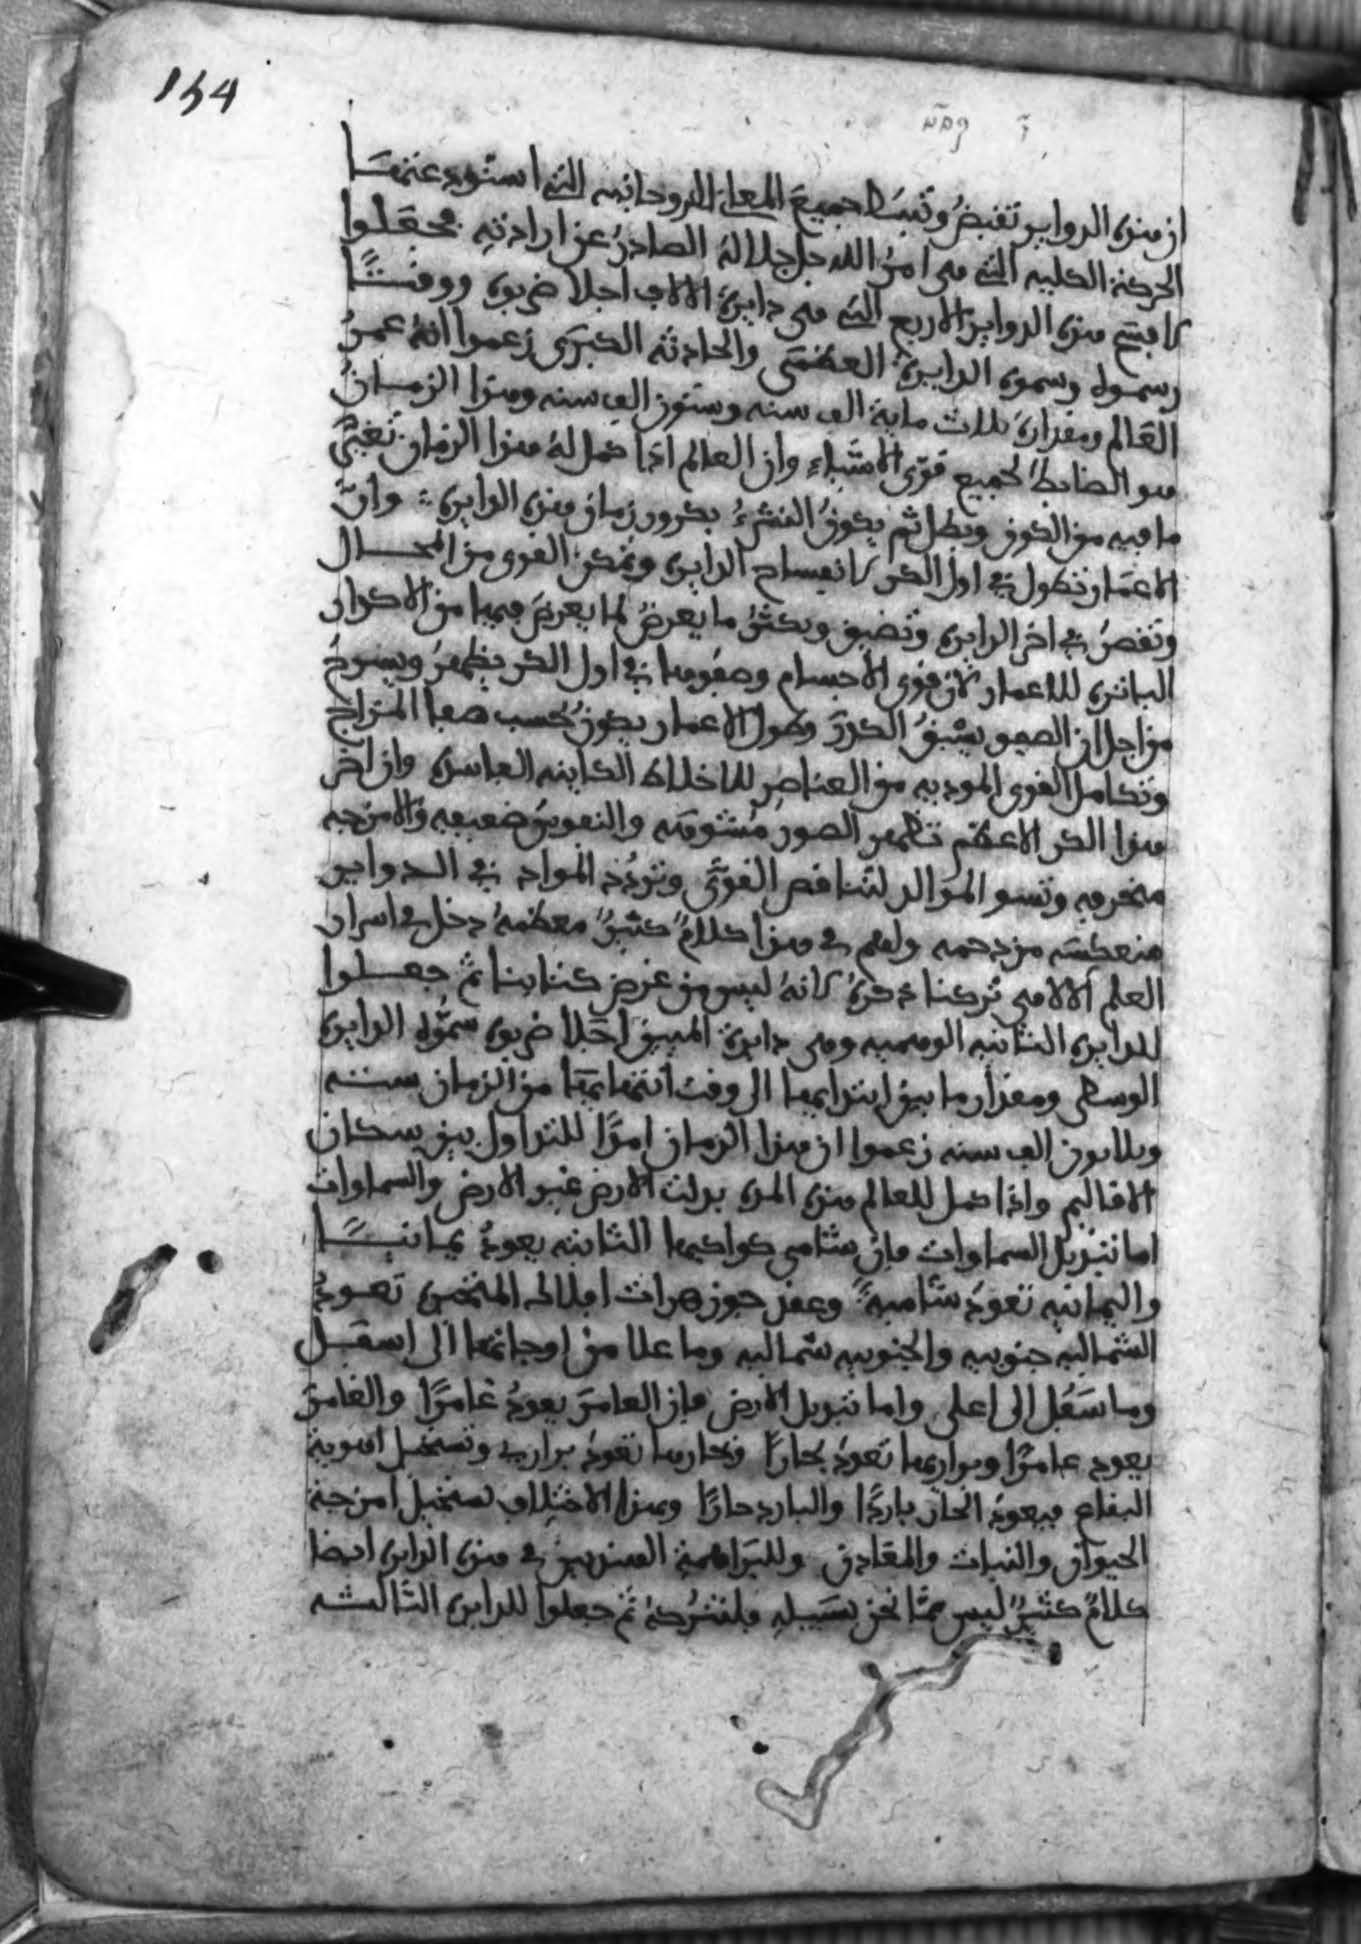 154
ان هذه الدواير تقبض وتبسط جميع المعاني الروحانيه التي استنوع عنها
الحركة الكليه التي هي امر الله جل جلاله الصادر عن ارادته فجعلوا
لافتتح هذه الدواير الاربع التي هي دايرة الالاف اجلا ضربوه ووقتا
رسموه وسموه الدايرة العظمى والحادثه الكبرى زعموا انه عمر
العالم ومقداره ثلاث ماية الف سنه وستون الف سنه وهذا الزمان
هو الضابط لجميع قوى الاشياء وان العالم اذا كمل له هذا الزمان تغير
ما فيه من الكون وبطل ثم يكون النشوء بكرور زمان هذه الدايره وان
الاعمار تطول في اول الكر لانفساح الدايره وتمكن القوى من المجال
وتقصر في اخر الدايره وتضيق ويكثر ما يعرض لما يعرض فيها من الاكدار
الباتره للاعمار لان قوى الاجسام وصفوها في اول الكر يظهر ويسرح
من اجل ان الصفو يسبق الكدر وطول الاعمار يكون بحسب صفا المزاج
وتكامل القوى الموديه من العناصر للاخلاط الكاينه الفاسده وان اخر
هذا الكر الاعظم تظهر الصور مشوهه والنفوس ضعيفه والامزجه
منخرمه وتسوء المواليد لتناقص القوى وتردد المواد في الدواير
منعكسه مزدحمه ولهم في هذا كلام كثير معظمه دخل في اسرار
العلم الالاهي تركنا ذكره لانه ليس من غرض كتابنا ثم جعلوا
للدايره الثانيه الوهميه وهي دايرة المبين اجلا ضربوه سموه الدايره
الوسطى ومقدار ما بين ابتدايها الى وقت انتهايها من الزمان سته
وثلاثون الف سنه زعموا ان هذا الزمان امدا للتداول بين سكان
الاقاليم واذا كمل للعالم هذه المده بدلت الارض غير الارض والسماوات
اما تبديل السماوات فان شامي كواكبها الثابته يعود يمانيا
واليمانيه تعود شاميه وعقد جوزهرات افلاك المتحيره تعود
الشماليه جنوبيه والجنوبيه شماليه وما علا من اوجاتها الى اسفل
وما سفل الى اعلى واما تبديل الارض فان العامر يعود غامرا والغامر
يعود عامرا وبراريها تعود بحارا وبحارها تعود براري وتستحيل اهوية
البقاع فيعود الحار باردا والبارد حارا وبهذا الاختلاف تستحيل امزجة
الحيوان والنبات والمعادن وللبراهمة الهنديين في هذه الدايره ايضا
كلام كثير ليس مما نحن بسبيله فلنتركه ثم جعلوا للدايره الثالثه